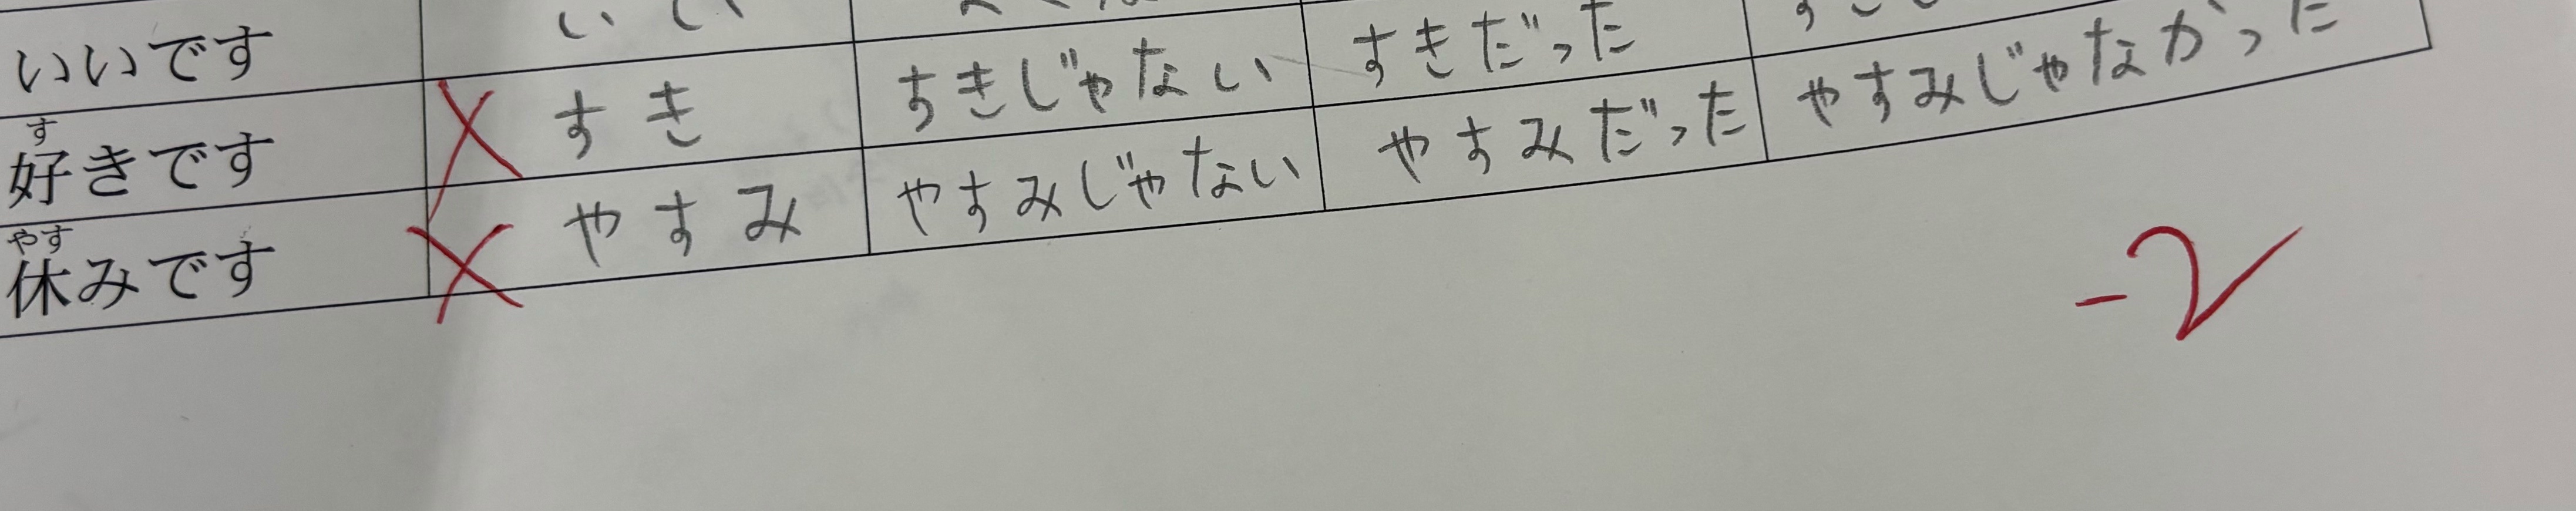 いいです いい
好きです すき すきじゃない すきだった
休みです やすみ やすみじゃない やすみだった やすみじゃなかった
-2